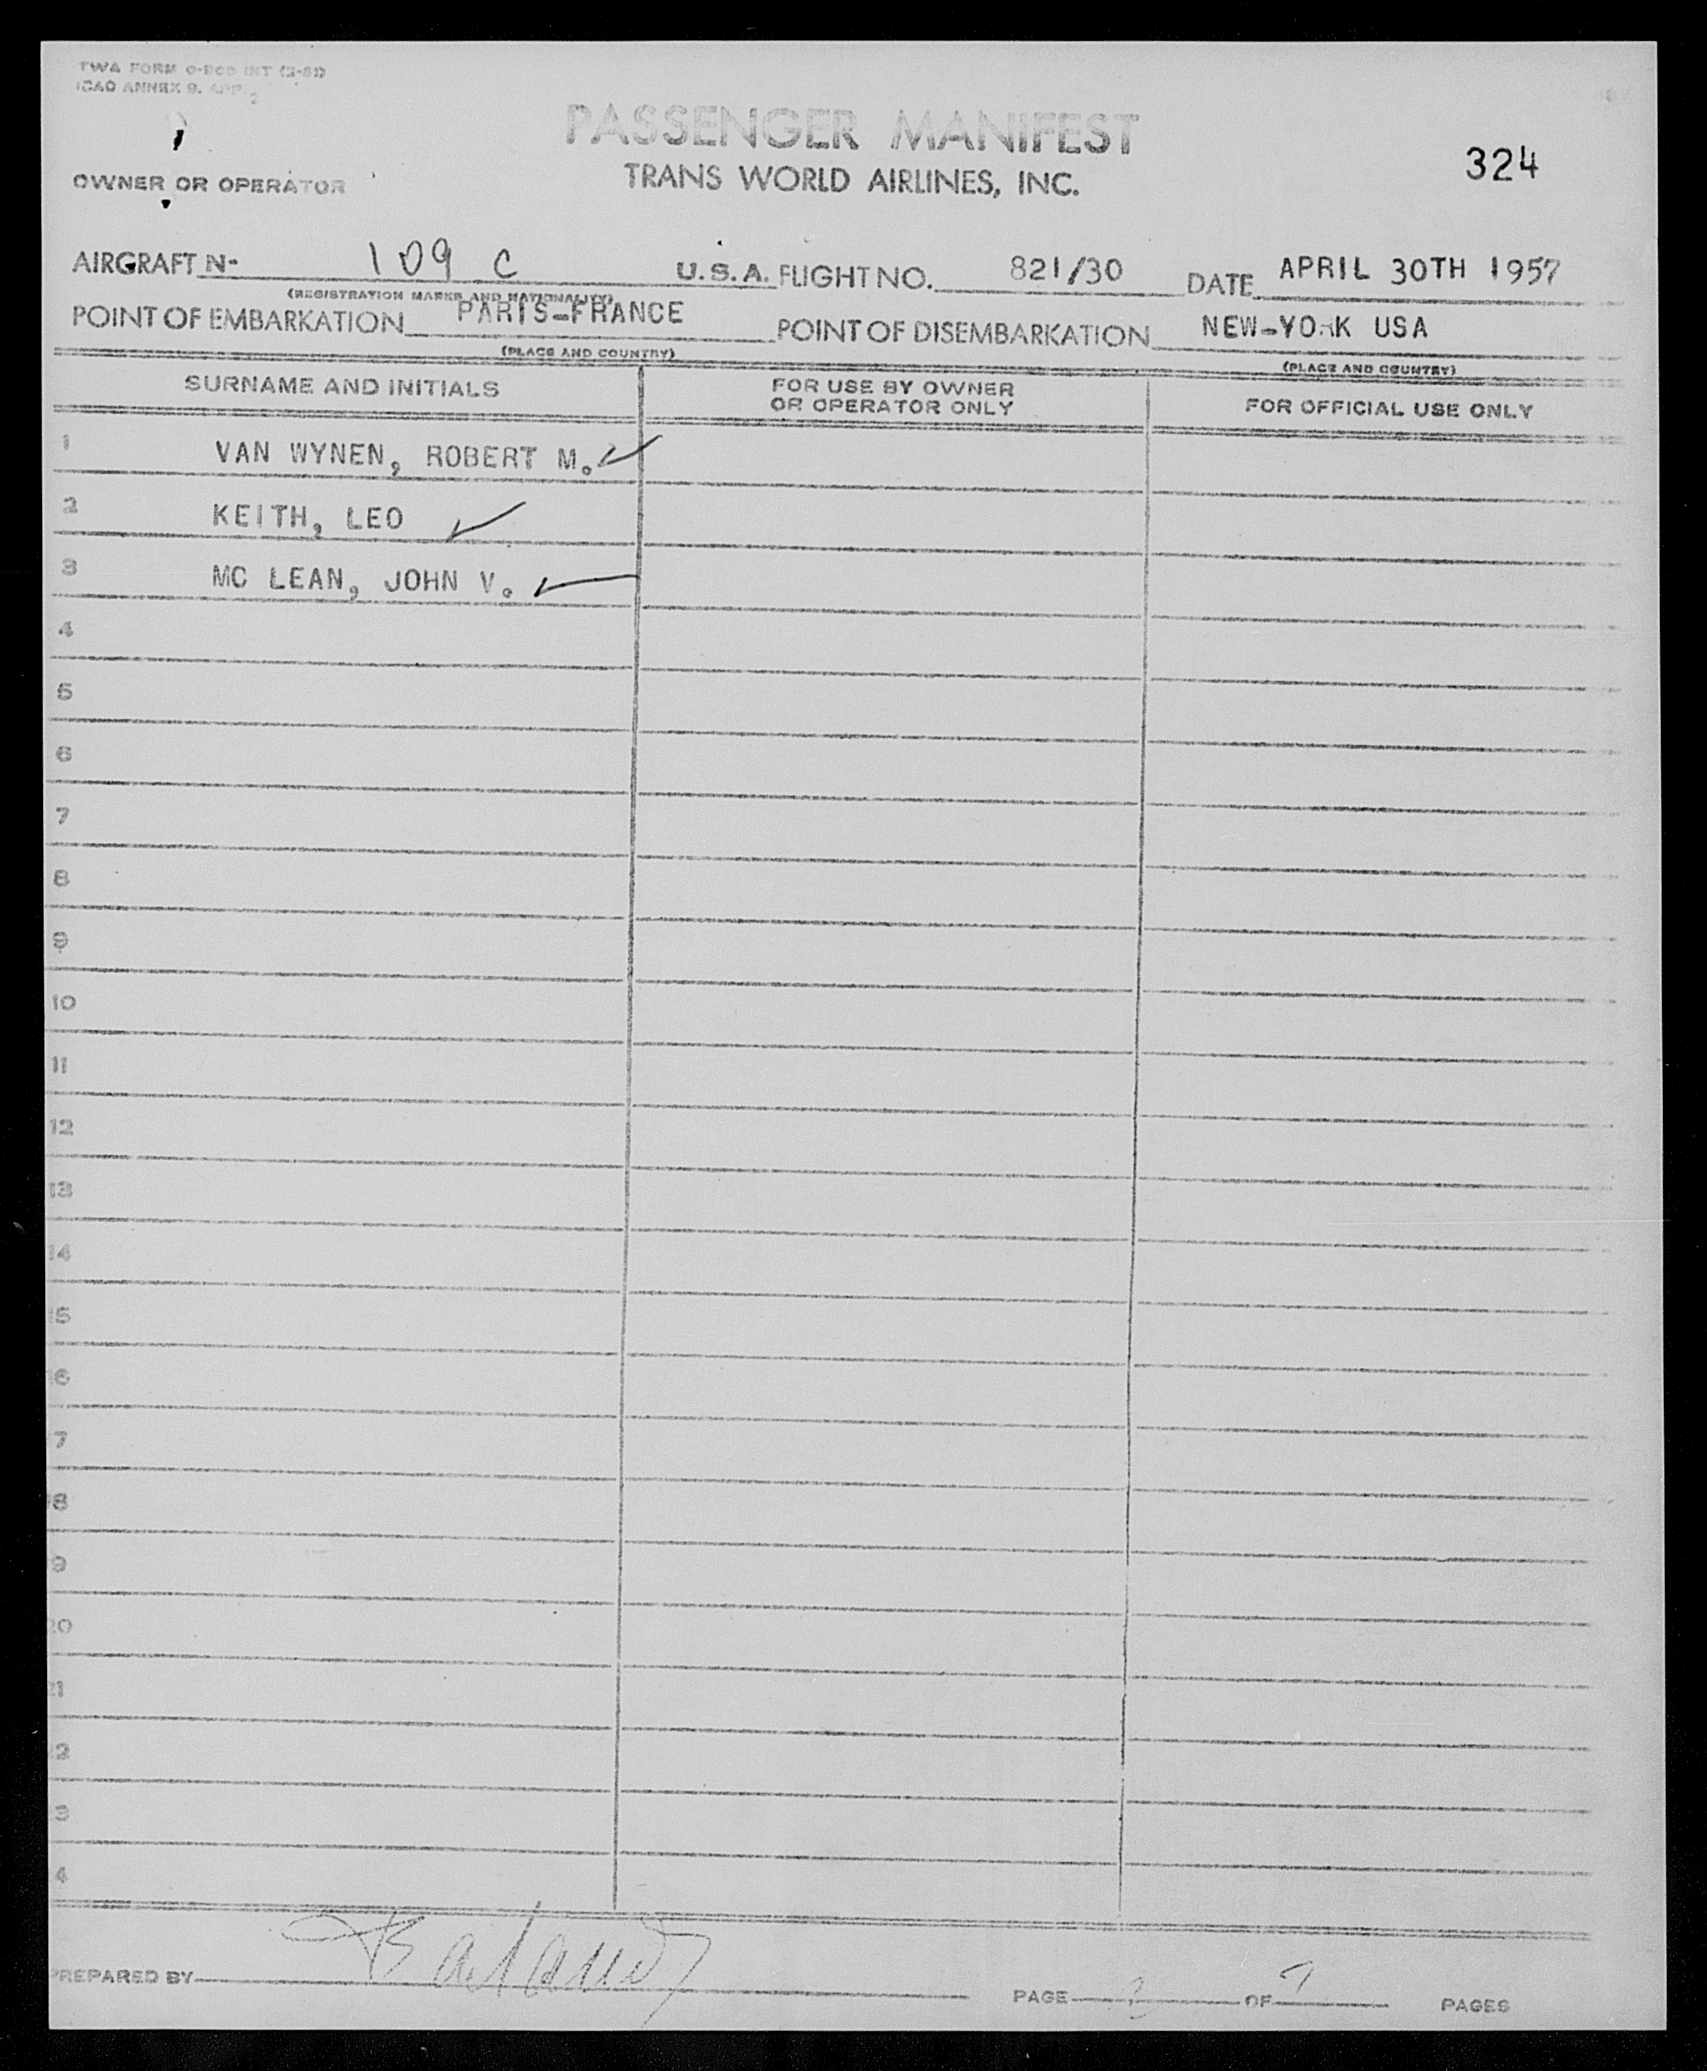 TWA FORM
ICAO ANNEX 9, APP. 2
PASSENGER MANIFEST
324
OWNER OR OPERATOR
TRANS WORLD AIRLINES, INC.
AIRCRAFT N- 109 C U.S.A. FLIGHT NO. 821/30 DATE APRIL 30TH 1957
(REGISTRATION MARKS AND NATIONALITY)
POINT OF EMBARKATION PARIS-FRANCE POINT OF DISEMBARKATION NEW-YORK USA
(PLACE AND COUNTRY) (PLACE AND COUNTRY)
SURNAME AND INITIALS FOR USE BY OWNER OR OPERATOR ONLY FOR OFFICIAL USE ONLY
1 VAN WYNEN, ROBERT M.
2 KEITH, LEO
3 MC LEAN, JOHN V.
4
5
6
7
8
9
10
11
12
13
14
15
16
17
18
19
20
21
22
23
24
PREPARED BY
PAGE OF PAGES